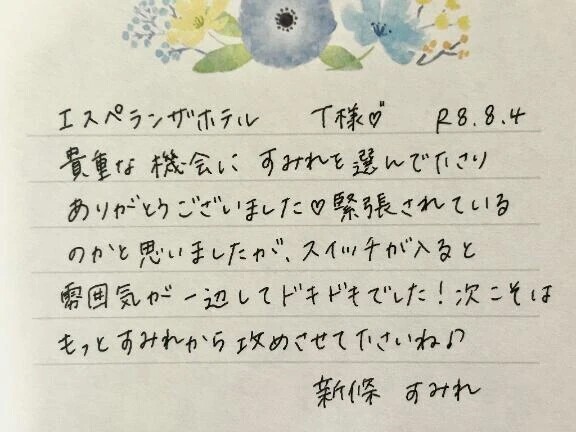 エスペランザホテル T様♡ R8.8.4
貴重な機会に すみれを選んで下さり
ありがとうございました♡緊張されている
のかと思いましたが、スイッチが入ると
雰囲気が一辺してドキドキでした!次こそは
もっとすみれから攻めさせて下さいね♪
新條 すみれ